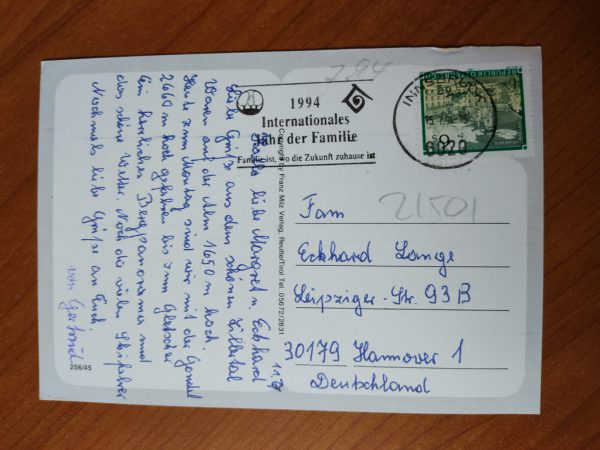 294
INNSBRUCK
15.7.94-15
6020
REPUBLIK
1994
Internationales
Jahr der Familie
Familie ist, wo die Zukunft zuhause ist
11.7.
Hallo liebe Margret u. Eckhard
Liebe Grüße aus dem schönen Zillertal
Waren auf der Alm 1650 m hoch
Heute zum Montag sind wir mit der Gondel
2660 m hoch gefahren bis zum Gletscher
Ein herrliches Bergpanorama und
das schöne Wetter. Noch die vielen Skifahrer
Nochmals liebe Grüße an Euch
von Gertrud
256/45
Copyright by Franz Milz Verlag, Reutte/Tirol Tel. 05672/2831
21501
Fam
Eckhard Lange
Leipziger-Str. 93 B
30179 Hannover 1
Deutschland